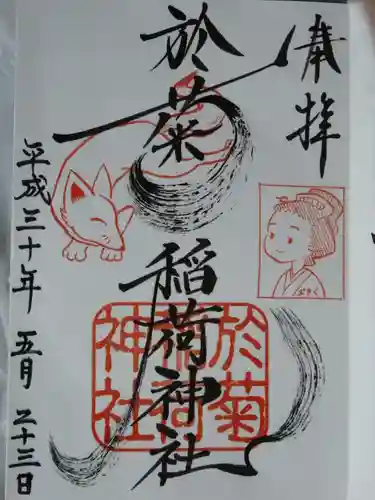 奉拝
於菊
稲荷神社
おきく
於菊
稲荷
神社
平成三十年 五月 二十三日